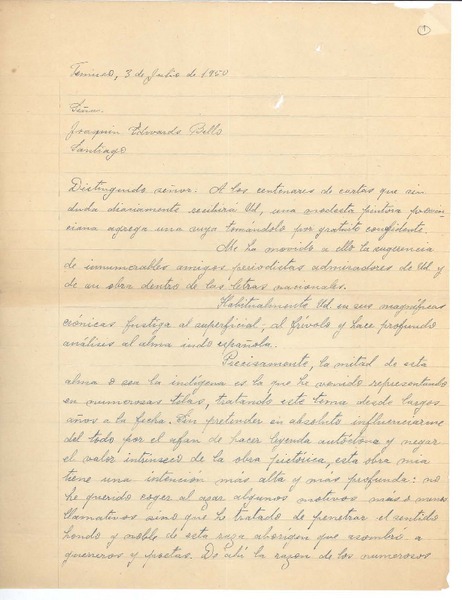 1
Temuco, 3 de Julio de 1950
Señor
Joaquín Edwards Bello
Santiago
Distinguido señor: A los centenares de cartas que sin
duda diariamente recibirá Ud, una modesta pintora provin
ciana agrega una suya tomándolo por gratuito confidente.
Me ha movido a ello la sugerencia
de innumerables amigos periodistas admiradores de Ud. y
de su obra dentro de las letras nacionales.
Habitualmente Ud. en sus magníficas
crónicas fustiga al superficial, al frívolo y hace profundo
análisis al alma indo española.
Precisamente, la mitad de esta
alma o sea la indígena es la que he venido representando
en numerosas telas, tratando este tema desde largos
años a la fecha. Sin pretender en absoluto influenciarme
del todo por el afán de hacer leyenda autóctona y negar
el valor intrínseco de la obra pictórica, esta obra mía
tiene una intención más alta y más profunda: no
he querido coger al azar algunos motivos más o menos
llamativos sino que he tratado de penetrar el sentido
hondo y noble de esta raza aborigen que asombró a
guerreros y poetas. De allí la razón de los numerosos